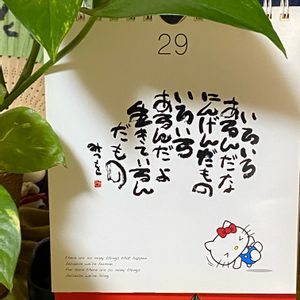 29
いろいろ
あるんだな
にんげんだもの
いろいろ
あるんだよ
生きているん
だもの
みつを
there are so many things that happen
because we're human
for sure there are so many things
because we're living